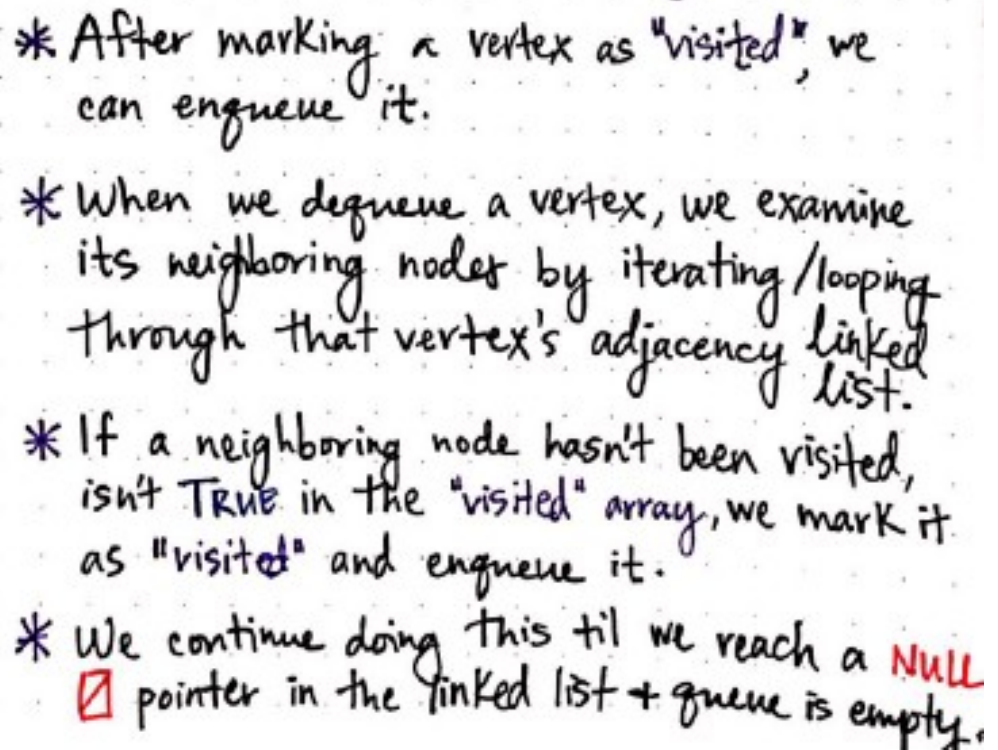 * After marking a vertex as "visited", we
can enqueue it.
* When we dequeue a vertex, we examine
its neighboring nodes by iterating/looping
through that vertex's adjacency linked
list.
* If a neighboring node hasn't been visited,
isn't TRUE in the "visited" array, we mark it
as "visited" and enqueue it.
* We continue doing this til we reach a NULL
pointer in the linked list + queue is empty.